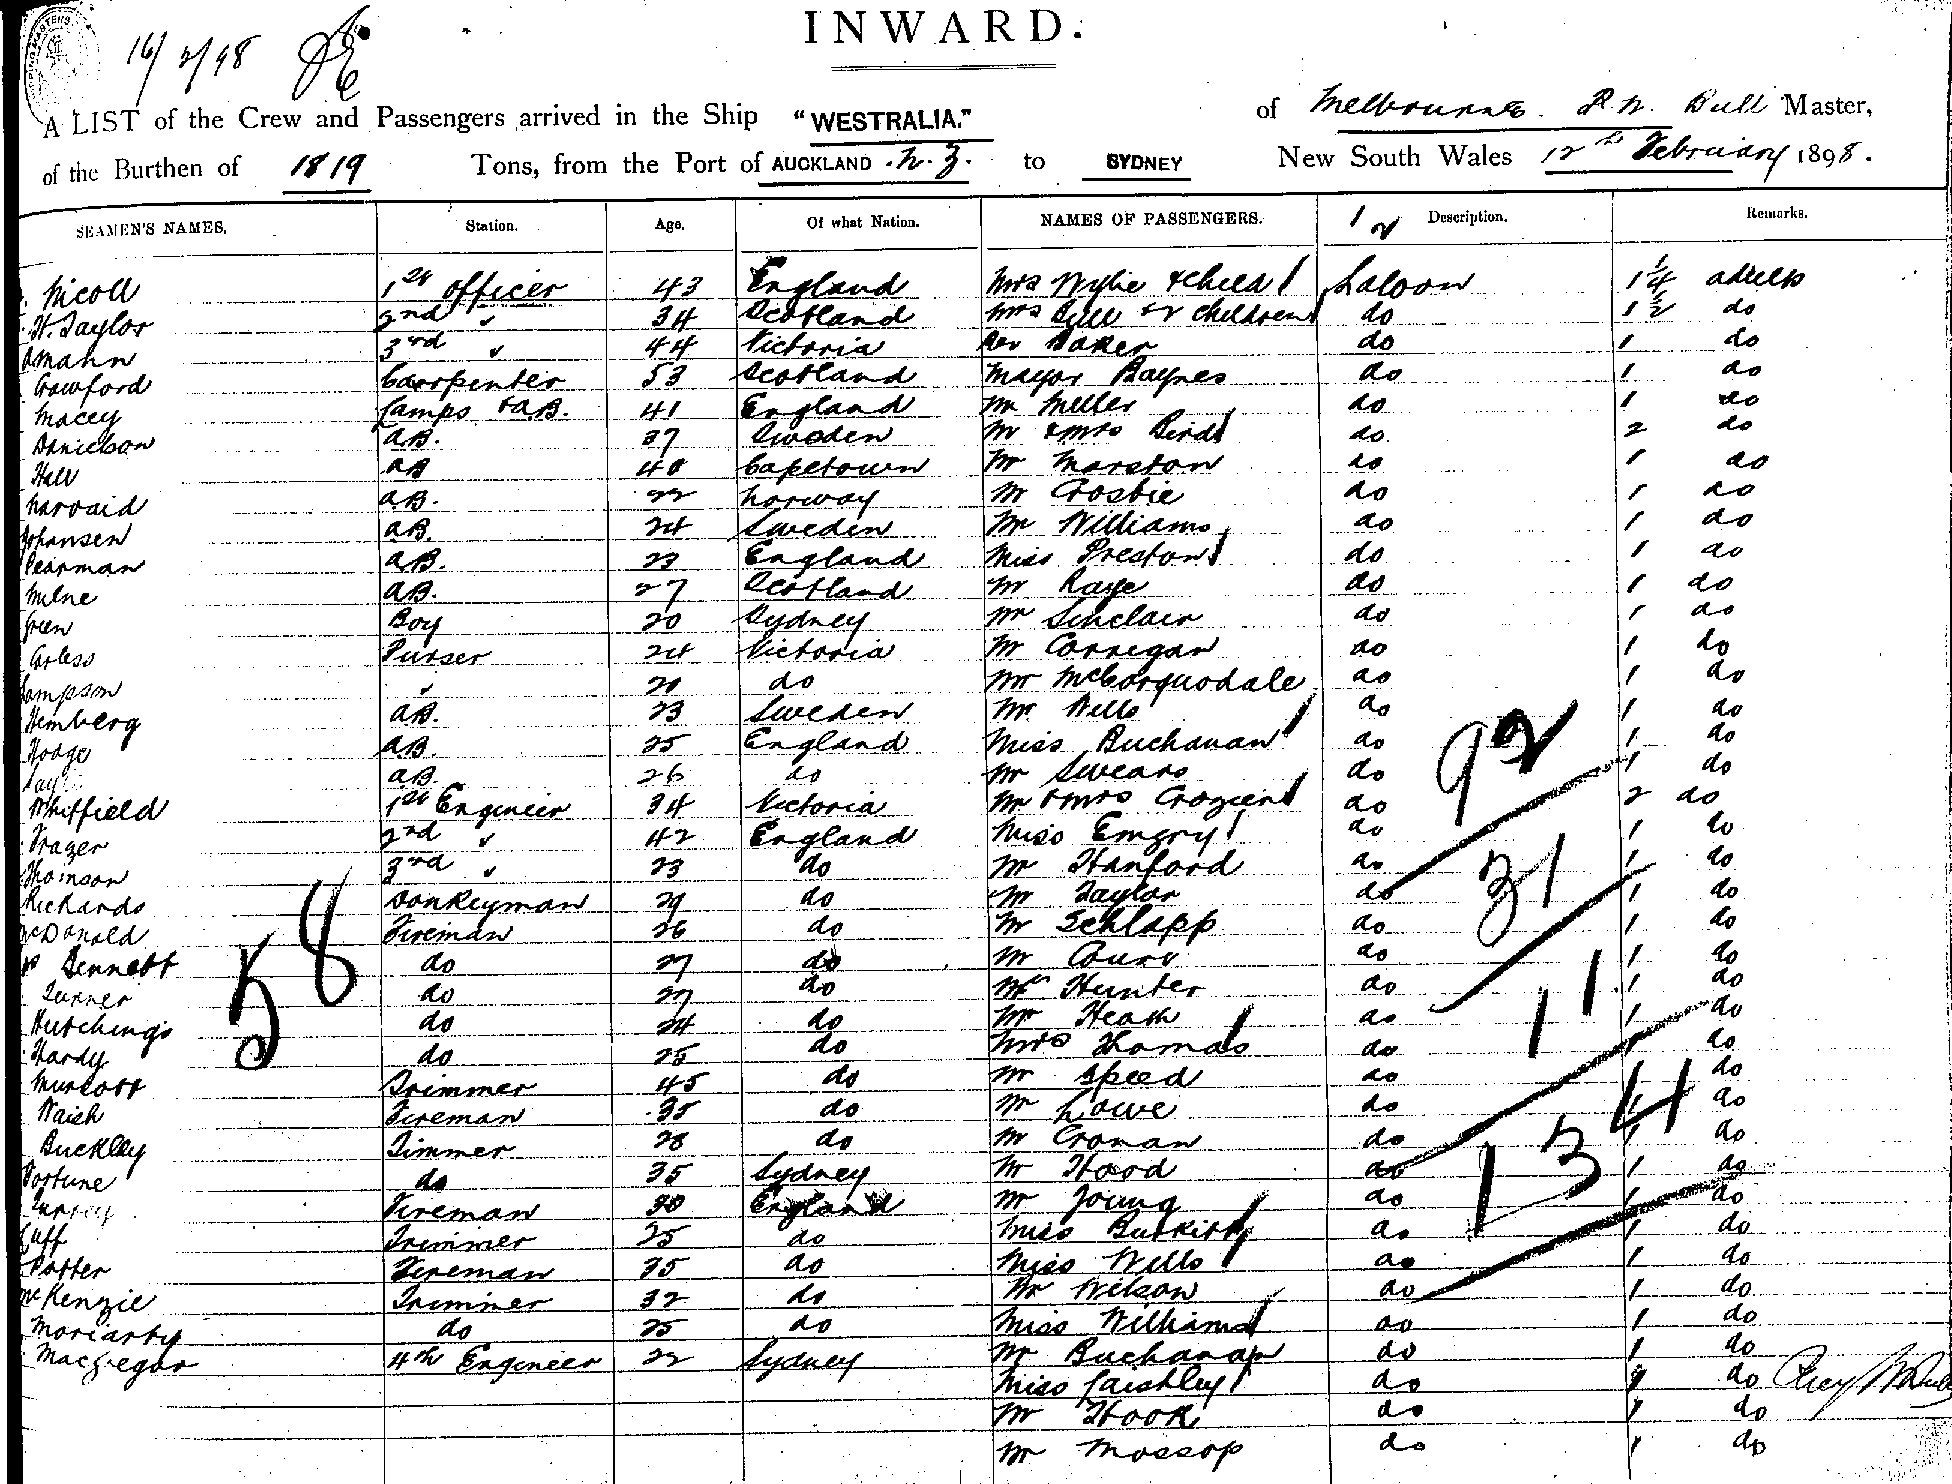 INWARD.
16/2/98
A LIST of the Crew and Passengers arrived in the Ship "WESTRALIA." of Melbourne. P.N. Bull Master,
of the Burthen of 1819 Tons, from the Port of AUCKLAND N.Z. to SYDNEY New South Wales 12th February 1898.
SEAMEN'S NAMES. Station. Age. Of what Nation. NAMES OF PASSENGERS. 12 Description. Remarks.
Nicoll 1st officer 43 England Mrs Wylie & Child Saloon 1 1/4 adults
H. Taylor 2nd " 34 Scotland Mrs Bull & 2 Children do 1 1/2 do
3rd " 44 Victoria Rev Baker do 1 do
Crawford Carpenter 53 Scotland Mayor Baynes do 1 do
Macey Lamps & AB. 41 England Mr Miller do 1 do
Danielson AB. 37 Sweden Mr & Mrs Bird do. 2 do
Hall AB 40 Capetown Mr Marston do 1 do
AB. 22 Norway Mr Crosbie do 1 do
Johansen AB. 24 Sweden Mr Williams do 1 do
Pearman AB. 23 England Miss Preston do 1 do
Milne AB. 27 Scotland Mr Raye do 1 do
Green Boy 20 Sydney Mr Sinclair do 1 do
Purser 24 Victoria Mr Corrigan do 1 do
" 20 do Mr McCorquodale do 1 do
Hemberg AB. 23 Sweden Mr Wells do 1 do
Hodge AB. 25 England Miss Buchanan do 1 do
AB. 26 do Mr Swears do 1 do
Whitfield 1st Engineer 34 Victoria Mr & Mrs Crozier do 2 do
2nd " 42 England Miss Emery do 1 do
Thomson 3rd " 23 do Mr Hanford do 1 do
Richards Donkeyman 29 do Mr Taylor do 1 do
McDonald Fireman 26 do Mr Schlapp do 1 do
Bennett do 27 do Mr do 1 do
Turner do 27 do Mr Hunter do 1 do
Hutchings do 24 do Mr Heath do 1 do
Hardy do 25 do Mrs Thomas do 1 do
Murcott Trimmer 45 do Mr Speed do 1 do
Fireman 35 do Mr Lowe do 1 do
Buckley Timmer 28 do Mr Cronan do 1 do
Fortune do 35 Sydney Mr Hood do 1 do
Fireman 30 England Mr Young do 1 do
Cuff Trimmer 25 do Miss do 1 do
Potter Fireman 35 do Miss Wells do 1 do
McKenzie Trimmer 32 do Mr Wilson do 1 do
Moriarty do 25 do Miss Williams do 1 do
MacGregor 4th Engineer 22 Sydney Mr Buchanan do 1 do
Miss Laishley do 1 do
Mr Hook do 1 do
Mr Mossop do 1 do
58
92
31
11
134